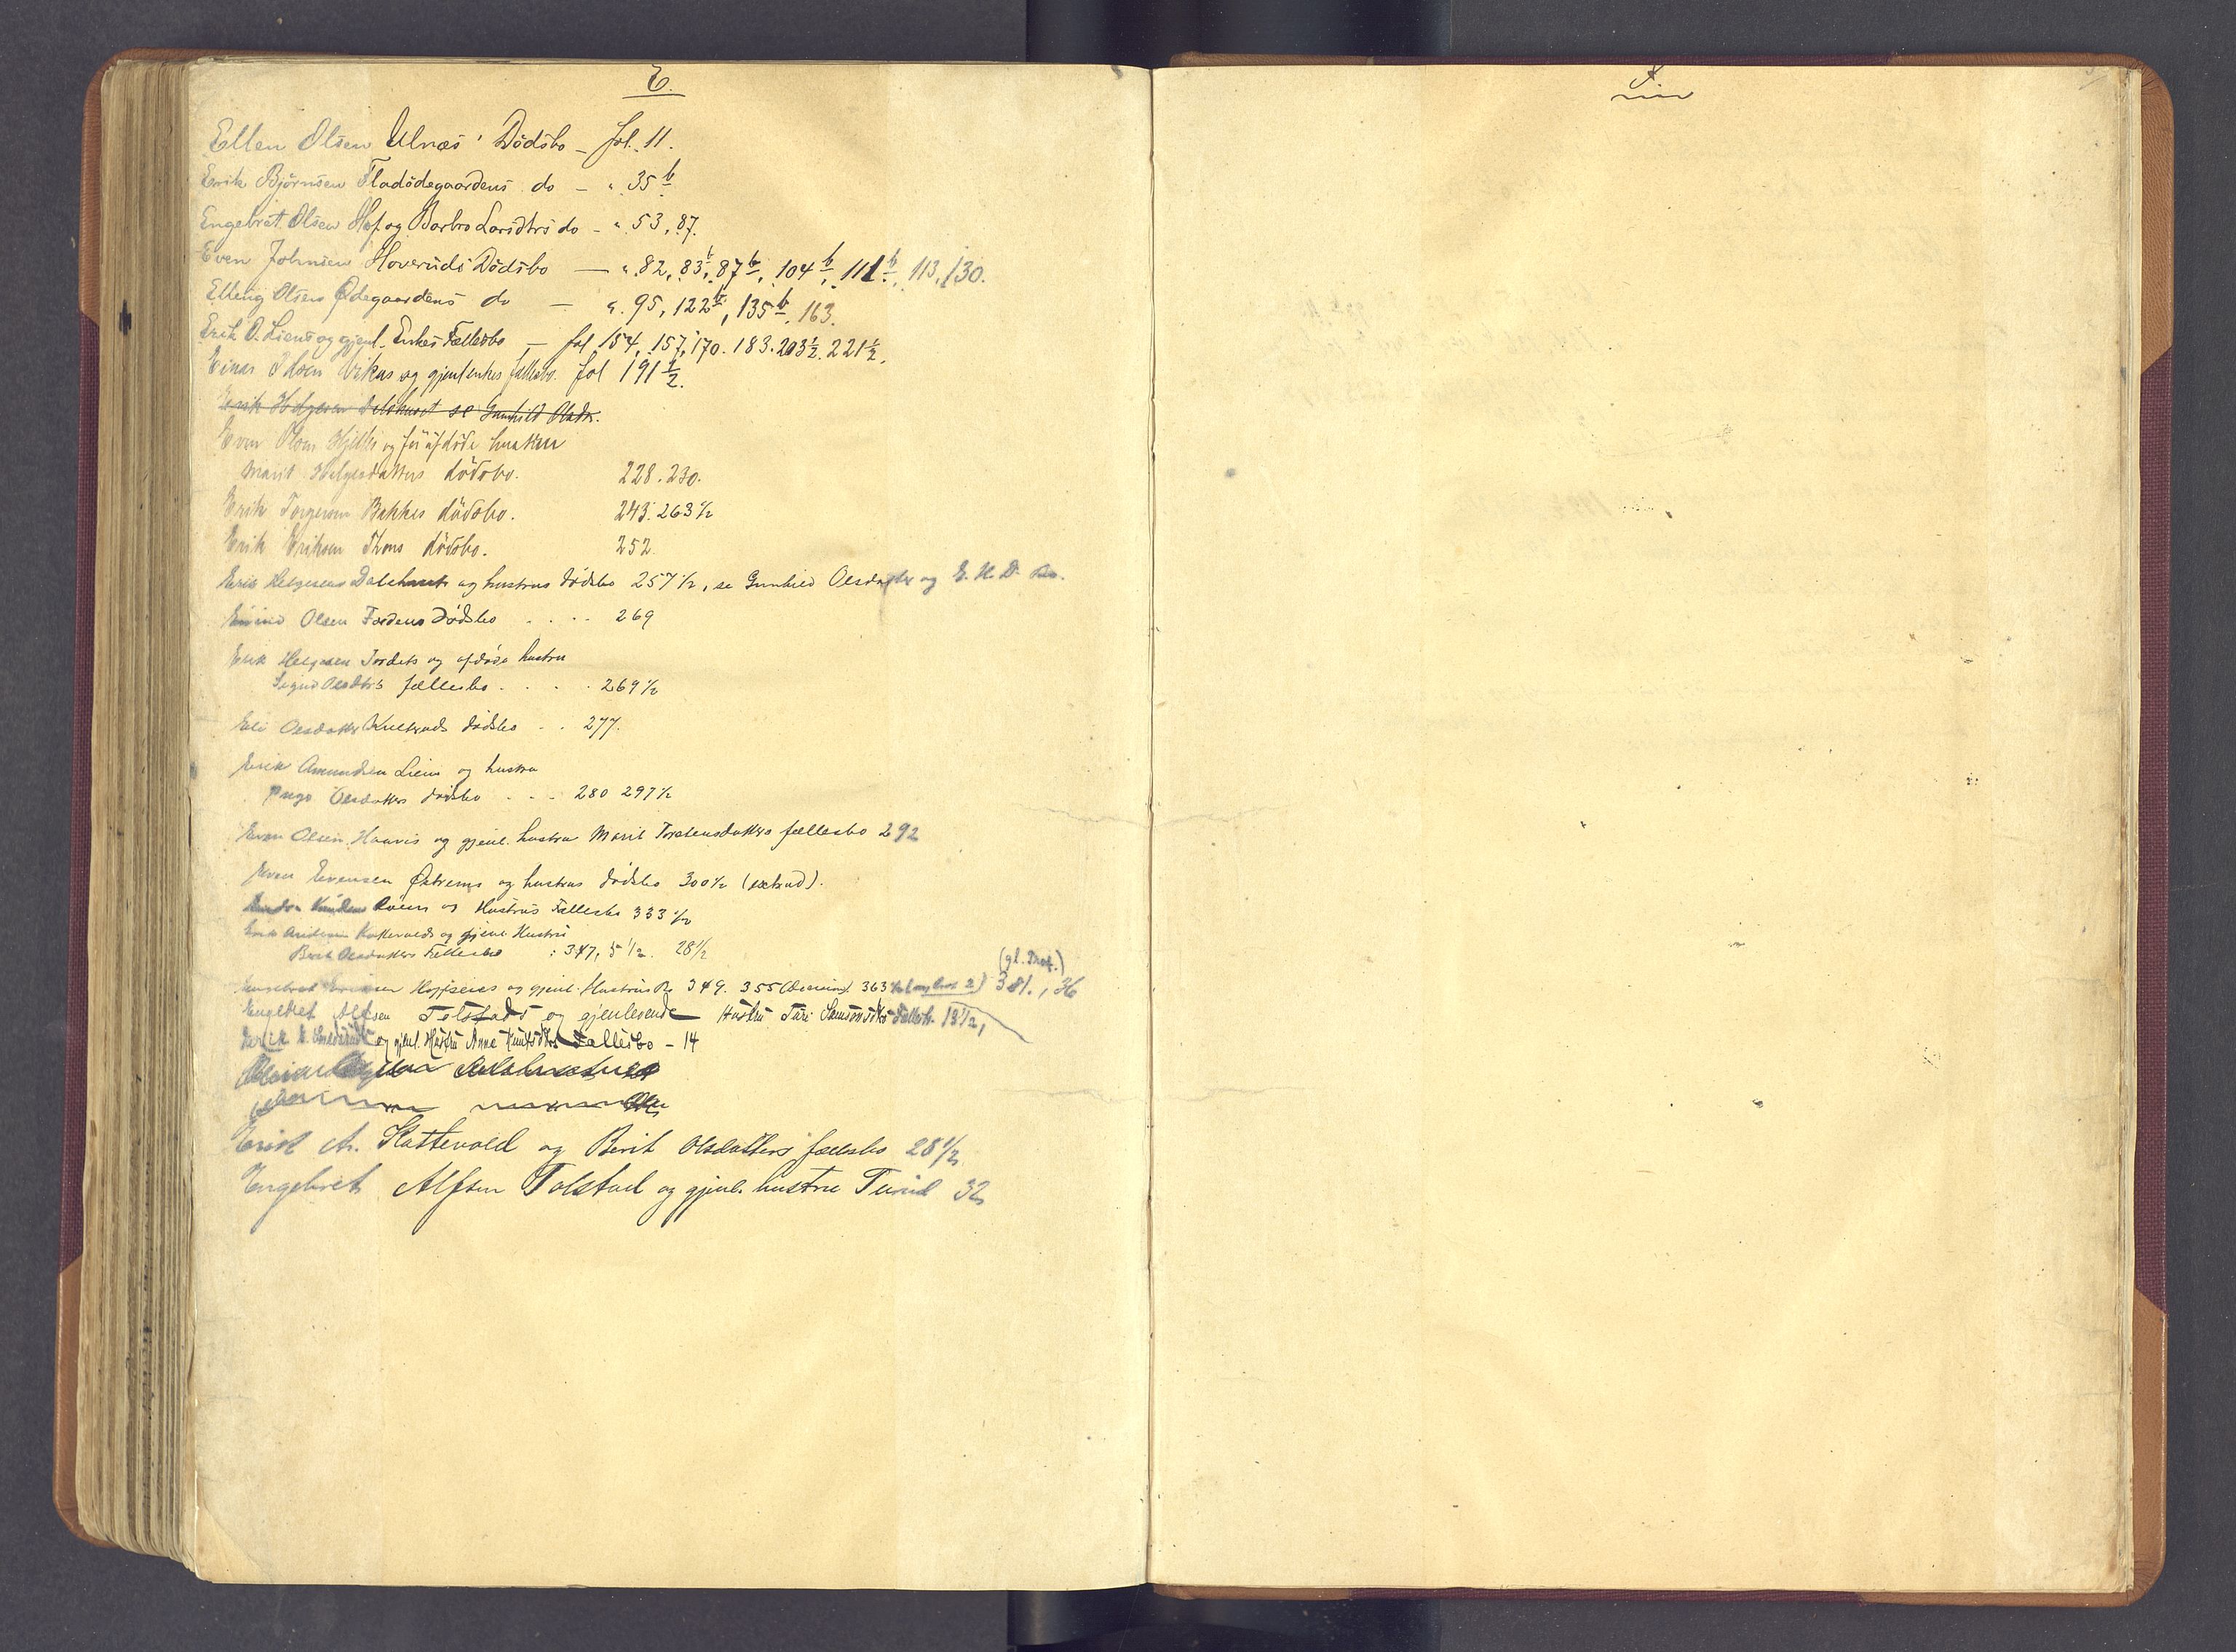 E.
Ellen Olsen Ulnæs' Dödsbo – fol. 11.
Erik Björnsen Fladödegaardens do – " 35 b
Engebret Olsen Hof og Barbro Larsdtrs do – " 53, 87.
Even Johnsen Hoveruds Dödsbo — " 82, 83 b, 87 b, 104 b, 111 b, 113, 130.
Elling Olsen Ødegaardens do — " 95, 122 b, 135 b, 163.
Erik O. Liens og gjenl. Enkes Fællesbo — fol 154, 157, 170. 183. 203½. 221½.
Einar Olsen Vikus og gjenl enkes fællesbo. fol 191½.
Erik Helgesen Dalehuset se Gunhild Olsdtr.
Even Olsens Hjelles og før afdöde hustru
Marit Helgesdatters dödsbo. 228. 230.
Erik Torgersen Bakkes dödsbo. 243. 263½
Erik Eriksen Thons dödsbo. 252.
Erik Helgesens Dalehusets og hustrus dödsbo 257½, se Gunhild Olsdatter og E. H. D. Bo.
Eivind Olsen Fordens Dödsbo . . . . 269
Erik Helgesen Jordets og afdöde hustru
Sigrid Olsdtrs fællesbo . . . . 269½
Eli Olsdatter dödsbo . . 277.
Erik Amundsen Liens og hustru
Olsdatters dödsbo . . . 280 297½
Even Olsen Haavis og gjenl. hustru Marit Torstensdatters fællesbo 292
Even Evensen Østrems og hustrus dödsbo 300½ (extrad).
Knudsen og Hustrus Fællesbo 333½
Erik og gjenl. Hustru
Berit Olsdatters Fællesbo : 347, 5½. 28½
(gl. Prot.)
og gjenl. Hustrus Bo 349. 355 363 381., 36
Engebret Alfsen Tolstads og gjenlevende Hustru Turi Samsonsdtrs Fællesb. 13½,
Erik og gjenl. Hustru Anne Knutsdtrs Fællesbo – 14
Erik A. Kattevold og Berit Olsdatters fællesbo 28½
Engebret Alfsen Tolstad og gjenl. hustru Turid 32
F